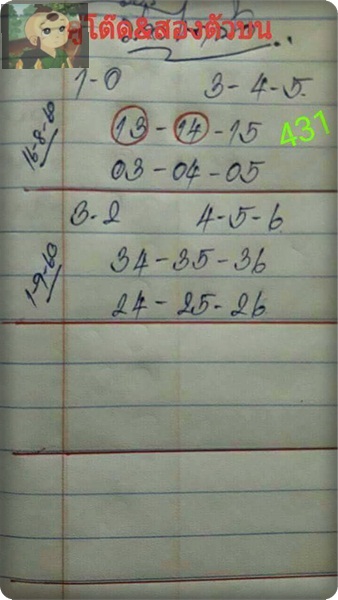 โต๊ด&สองตัวบน
1-0 3-4-5.
16-8-60
13-14-15 431
03-04-05
3-2 4-5-6
1-9-60
34-35-36
24-25-26